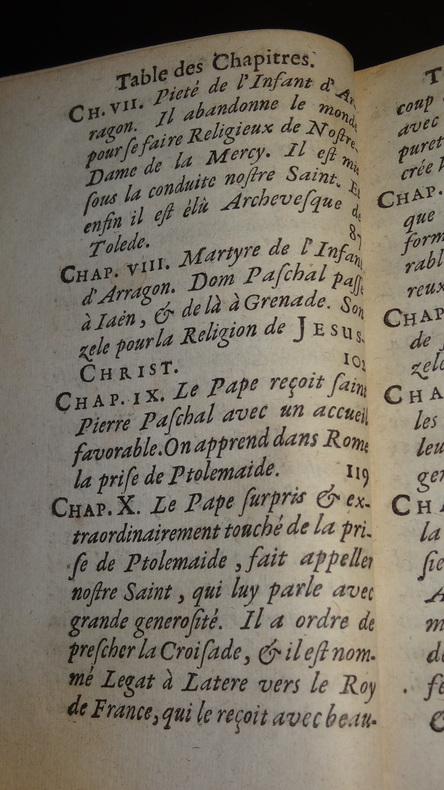 Table des Chapitres.
CH. VII. Pieté de l'Infant d'Ar-
ragon. Il abandonne le monde
pour ſe faire Religieux de Noſtre-
Dame de la Mercy. Il eſt mis
ſous la conduite noſtre Saint. Et
enfin il eſt élû Archeveſque de
Tolede. 87
CHAP. VIII. Martyre de l'Infant
d'Arragon. Dom Paſchal paſſe
à Iaën, & de là à Grenade. Son
zele pour la Religion de JESUS-
CHRIST. 102
CHAP. IX. Le Pape reçoit ſaint
Pierre Paſchal avec un accueil
favorable. On apprend dans Rome
la priſe de Ptolemaide. 119
CHAP. X. Le Pape ſurpris & ex-
traordinairement touché de la pri-
ſe de Ptolemaide, fait appeller
noſtre Saint, qui luy parle avec
grande generoſité. Il a ordre de
preſcher la Croiſade, & il eſt nom-
mé Legat à Latere vers le Roy
de France, qui le reçoit avec beau-
T
coup
avec
puret
crée
CHAP.
que
form
rabl
reux
CHAP
de
zele
CHA
les
leu
gen
CH
la
ſie
A
m
de
fe
&